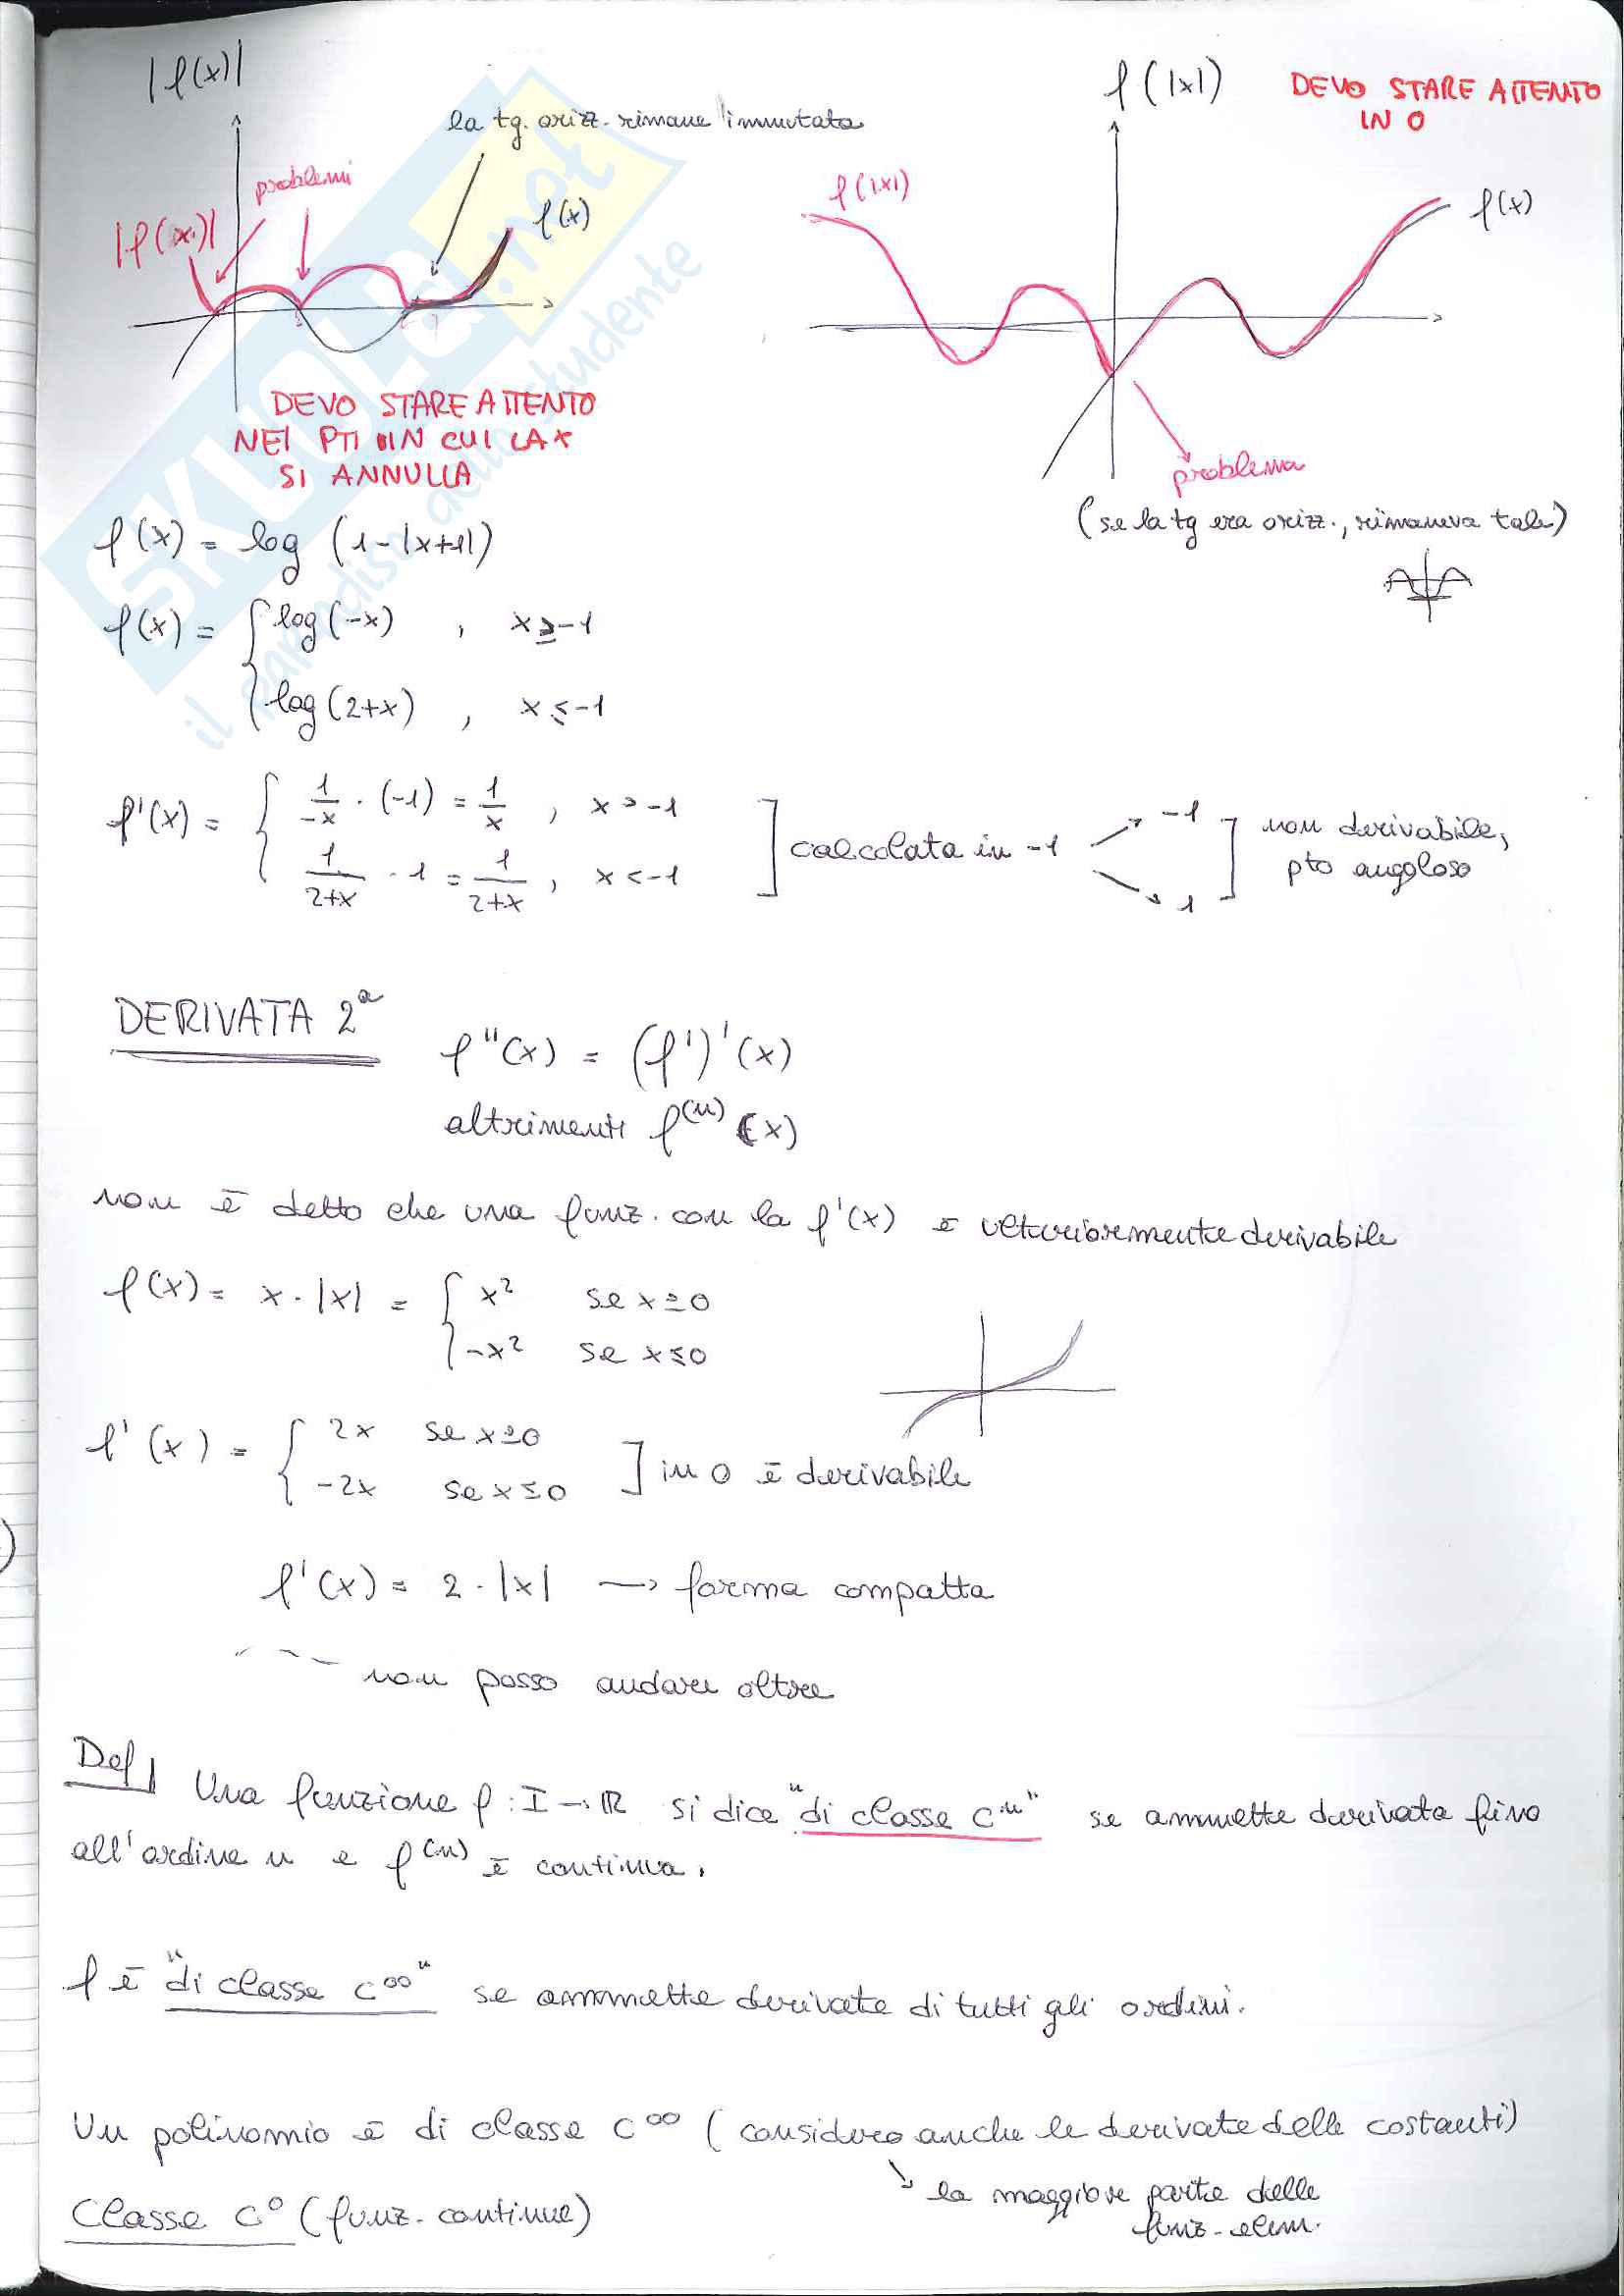 |f(x)|
la tg. orizz. rimane immutata
problemi
|f(x)|
f(x)
DEVO STARE ATTENTO
NEI PTI IN CUI LA x
SI ANNULLA
f(|x|)
DEVO STARE ATTENTO
IN 0
f(|x|)
f(x)
problema
(se la tg era orizz., rimaneva tale)
SKUOLA.net
il paradiso dello studente
f(x) = log (1-|x+1|)
f(x) = { log(-x) , x ≥ -1
log(2+x) , x ≤ -1
f'(x) = { 1/-x · (-1) = 1/x , x > -1
1/2+x · 1 = 1/2+x , x < -1
] calcolata in -1
-1
1
] non derivabile,
pto angoloso
DERIVATA 2ª
f''(x) = (f')'(x)
altrimenti f⁽ⁿ⁾(x)
non è detto che una funz. con la f'(x) è ulteriormente derivabile
f(x) = x · |x| = { x² se x ≥ 0
-x² se x ≤ 0
f'(x) = { 2x se x ≥ 0
-2x se x ≤ 0
] in 0 è derivabile
f'(x) = 2 · |x| → forma compatta
non posso andare oltre
Def
Una funzione f : I → ℝ si dice "di classe Cⁿ" se ammette derivata fino
all'ordine n e f⁽ⁿ⁾ è continua.
f è "di classe C∞" se ammette derivate di tutti gli ordini.
Un polinomio è di classe C∞ (considero anche le derivate delle costanti)
la maggiore parte delle
funz. elem.
Classe C⁰ (funz. continue)